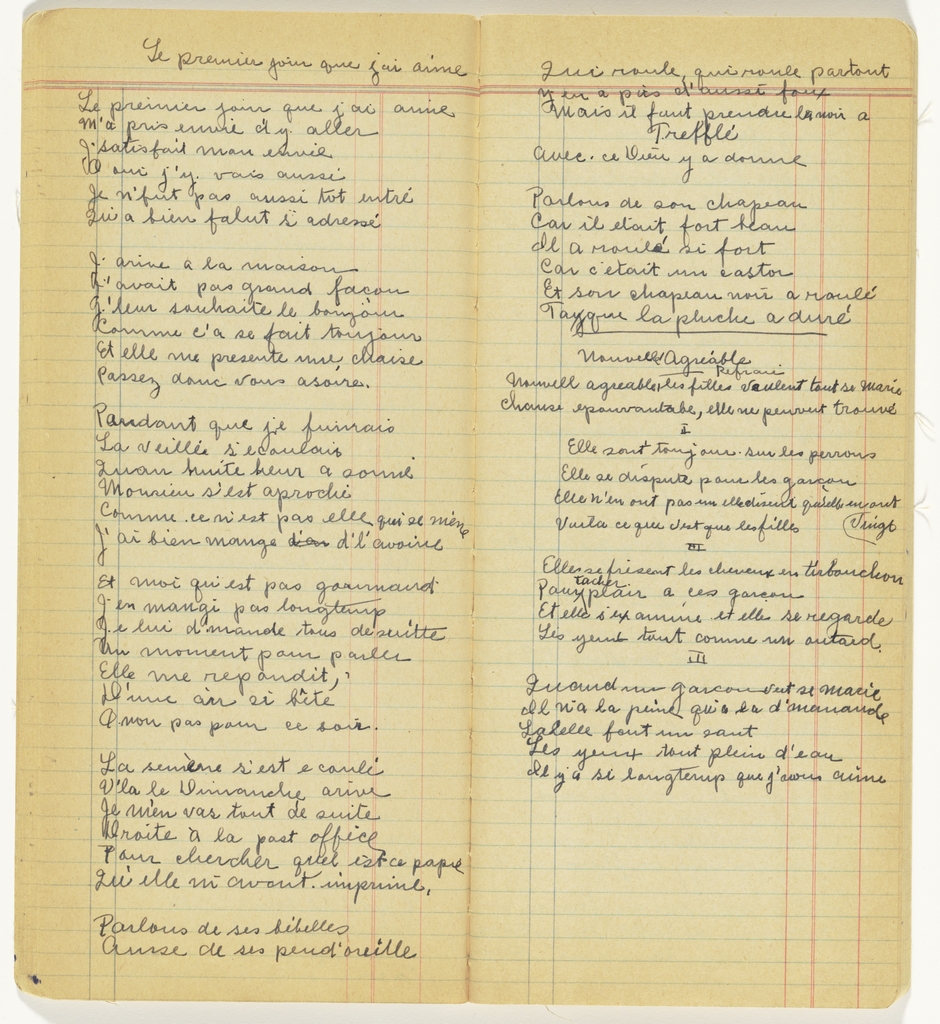 Le premier jour que j'ai aime
Le premier jour que j'ai aime
M'a pris envie d'y aller
J'satisfait mon envie
O oui j'y. vais aussi
Je n'fut pas aussi tot entré
Qu'a bien falut s'adressé
J'arive a la maison
J'avait pas grand facon
J'leur souhaite le bonjour
Comme c'a se fait toujour
Et elle me presente une chaise
Passez donc vous asoire.
Pandant que je fumais
La veillée s'ecoulais
Quan huite heur a sonné
Monsieu s'est aproché
Comme. ce n'est pas elle qui se mène
J'ai bien mangé d'l'avoine
Et moi qui est pas gourmand
J'en mangi pas longtemp
Je lui d'mande tous de suitte
Un moment pour parler
Elle me repondit,
D'une air si bête
O non pas pour ce soir.
La semène s'est ecoulé
V'la le Dimanche arive
Je m'en vas tout de suite
Droite à la post office
Pour chercher quel est ce papié
Qu'elle m'avont. imprimé,
Parlons de ses bébelles
Ausse de ses pend'oreille
Qui roule, qui roule partout
n'en a pas d'aussi foux
Mais il faut prendre le noir a
Trefflé
Avec. ce Dieu y a donne
Parlons de son chapeau
Car il etait fort beau
Il a roulé si fort
Car c'était un castor
Et son chapeau noir a roulé
Tayque la pluche a duré
Nouvell Agréable
Refrain
Nouvell agreable, les filles veulent tout se marie
Chause epouvantabe, elle ne peuvent trouvé
I
Elle sont toujour. sur les perrons
Elle se dispute pour les garçon
Elle n'en ont pas un elle disent qu'elle en ont
Voila ce que c'est que les filles (Vingt
III
Elles se frisent les cheveux en tirbouchon
Pour tacher plair a ces garçon
Et elle s'examine et elle se regarde
Les yeux tout comme un outard.
III
Quand un garcon veut se marie
Il n'a la peine qu'a la d'mande
La belle font un saut
Les yeux tout plein d'eau
Il y a si longtemp que j'vous aime